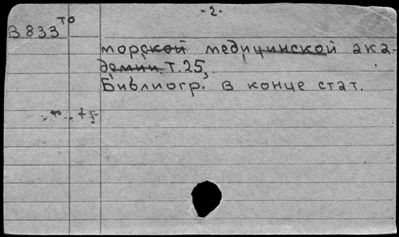 -2-
В 833 то
морской медицинской ака-
демии. Т. 25,
Библиогр. в конце стат.